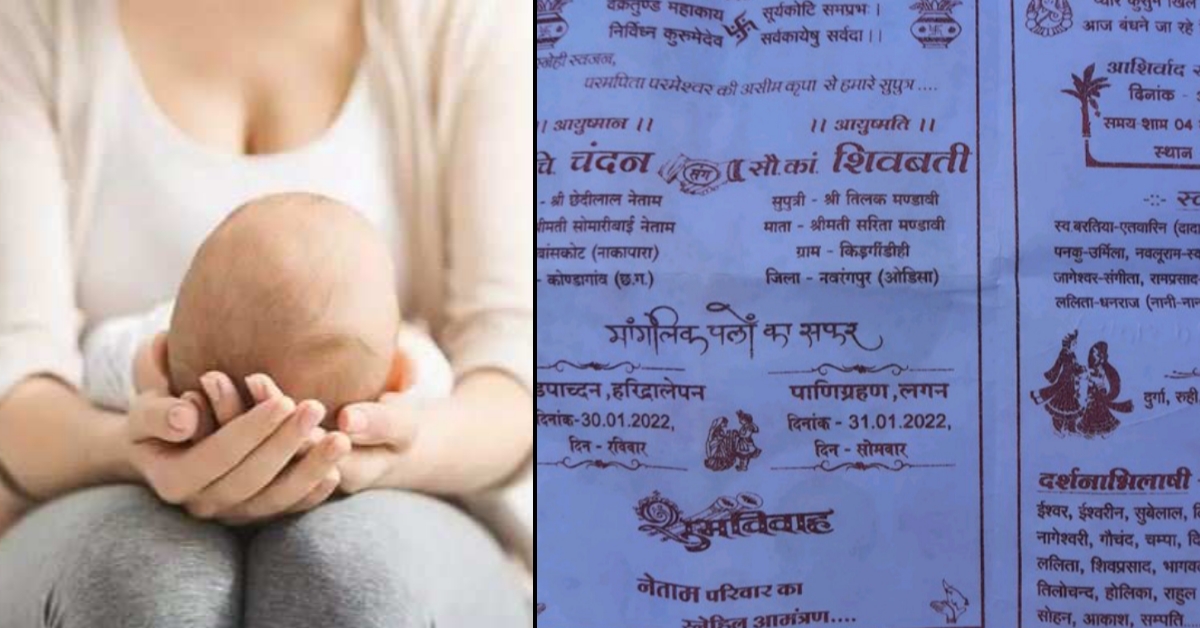 वक्रतुण्ड महाकाय सूर्यकोटि समप्रभः।
निर्विघ्न कुरूमेदेव सर्वकायेषु सर्वदा।।
स्नेही स्वजन,
परमपिता परमेश्वर की असीम कृपा से हमारे सुपुत्र....
।। आयुष्मान ।।
चंदन
- श्री छेदीलाल नेताम
श्रीमती सोमारीबाई नेताम
बांसकोट (नाकापारा)
- कोण्डागांव (छ.ग.)
संग
।। आयुष्मति ।।
सौ.कां. शिवबती
सुपुत्री - श्री तिलक मण्डावी
माता - श्रीमती सरिता मण्डावी
ग्राम - किड़गीडीही
जिला - नवरंगपुर (ओडिसा)
मांगलिक पलों का सफर
,हरिद्रालेपन
दिनांक-30.01.2022,
दिन - रविवार
पाणिग्रहण,लगन
दिनांक - 31.01.2022,
दिन - सोमवार
शुभविवाह
नेताम परिवार का
स्नेहिल आमंत्रण....
आज बंधने जा रहे
आशिर्वाद
दिनांक -
समय शाम 04
स्थान
स्व.बरतिया-एतवारिन
पनकु-उर्मिला, नवलूराम
जागेश्वर-संगीता,
ललिता-धनराज
दुर्गा, रुही
दर्शनाभिलाषी
ईश्वर, ईश्वरीन, सुबेलाल,
नागेश्वरी, गौचंद, चम्पा,
ललिता, शिवप्रसाद,
तिलोचन्द, होलिका, राहुल
सोहन, आकाश, सम्पति